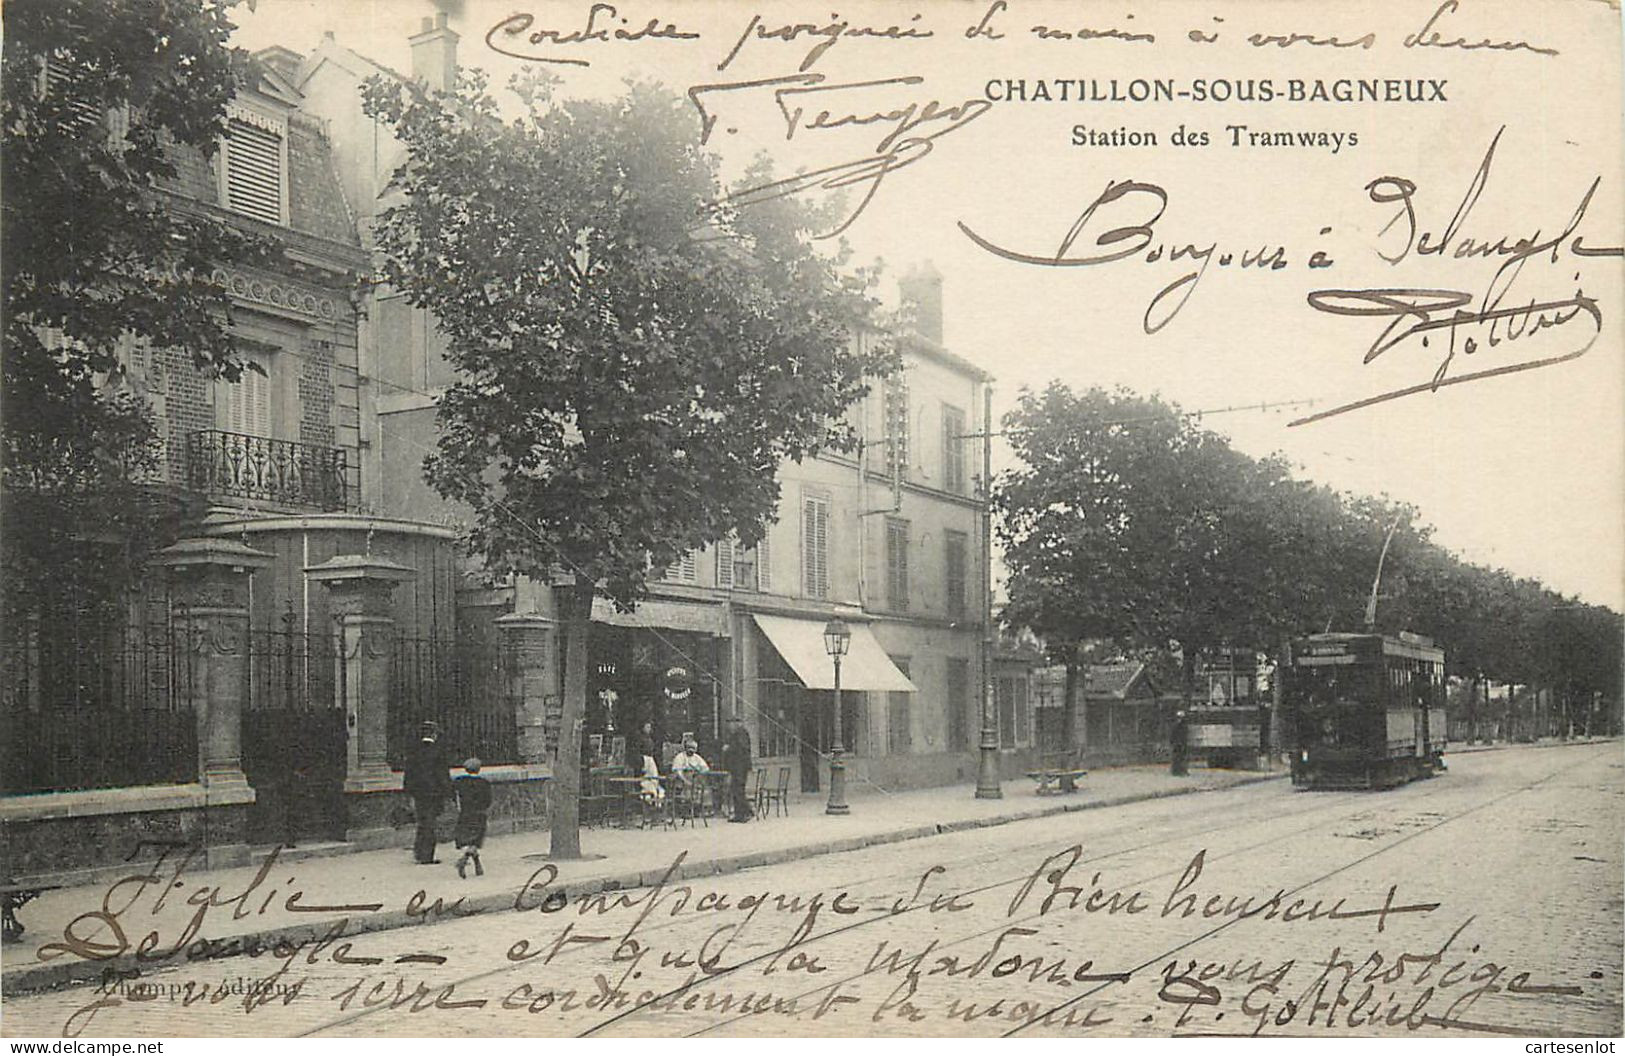 Cordiale poignée de main à vous deux
F. Fenger
CHATILLON-SOUS-BAGNEUX
Station des Tramways
Bonjour à Delangle
CAFÉ
Italie en Compagnie du Bienheureux
Delangle - et que la Madone vous protège.
Champy, éditeur
Je vous serre cordialement la main. P. Gottlieb
cartesenlot